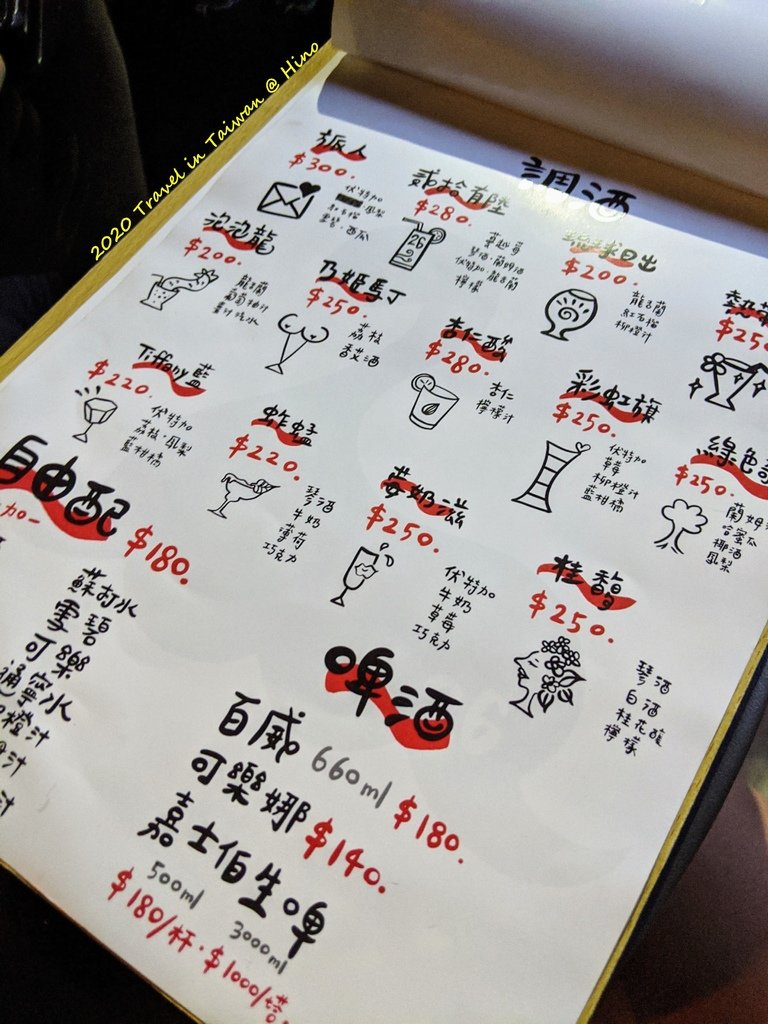 2020 Travel in Taiwan @ Hino
調酒
旅人
$300.
伏特加
鳳梨
紅石榴
西瓜
貳拾有陸
$280.
26
蔓越莓
琴酒·蘭姆酒
伏特加·龍舌蘭
檸檬
日出
$200.
龍舌蘭
紅石榴
柳橙汁
$250
泡泡龍
$200.
龍舌蘭
葡萄柚汁
薑汁汽水
乃姬馬丁
$250.
荔枝
香艾酒
杏仁酸
$280.
杏仁
檸檬汁
彩虹旗
$250.
伏特加
莓
柳橙汁
藍柑橘
綠色
$250.
蘭姆
哈蜜瓜
椰酒
鳳梨
Tiffany藍
$220.
伏特加
荔枝·鳳梨
藍柑橘
蚱蜢
$220.
琴酒
牛奶
薄荷
巧克力
莓奶滋
$250.
伏特加
牛奶
草莓
巧克力
桂馥
$250.
琴酒
白酒
桂花釀
檸檬
自由配
加一
$180.
蘇打水
雪碧
可樂
通寧水
橙汁
汁
汁
啤酒
百威 660ml $180.
可樂娜 $140.
嘉士伯生啤
500ml 3000ml
$180/杯·$1000/塔